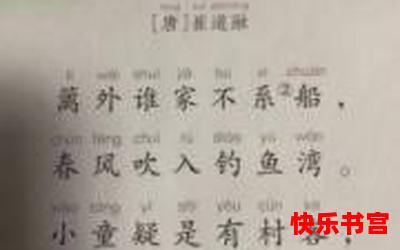 [唐]崔道融
lí wài shuí jiā bú jì chuán
篱外谁家不系②船，
chūn fēng chuī rù diào yú wān
春风吹入钓鱼湾。
xiǎo tóng yí shì yǒu cūn kè
小童疑是有村客
快乐书宫